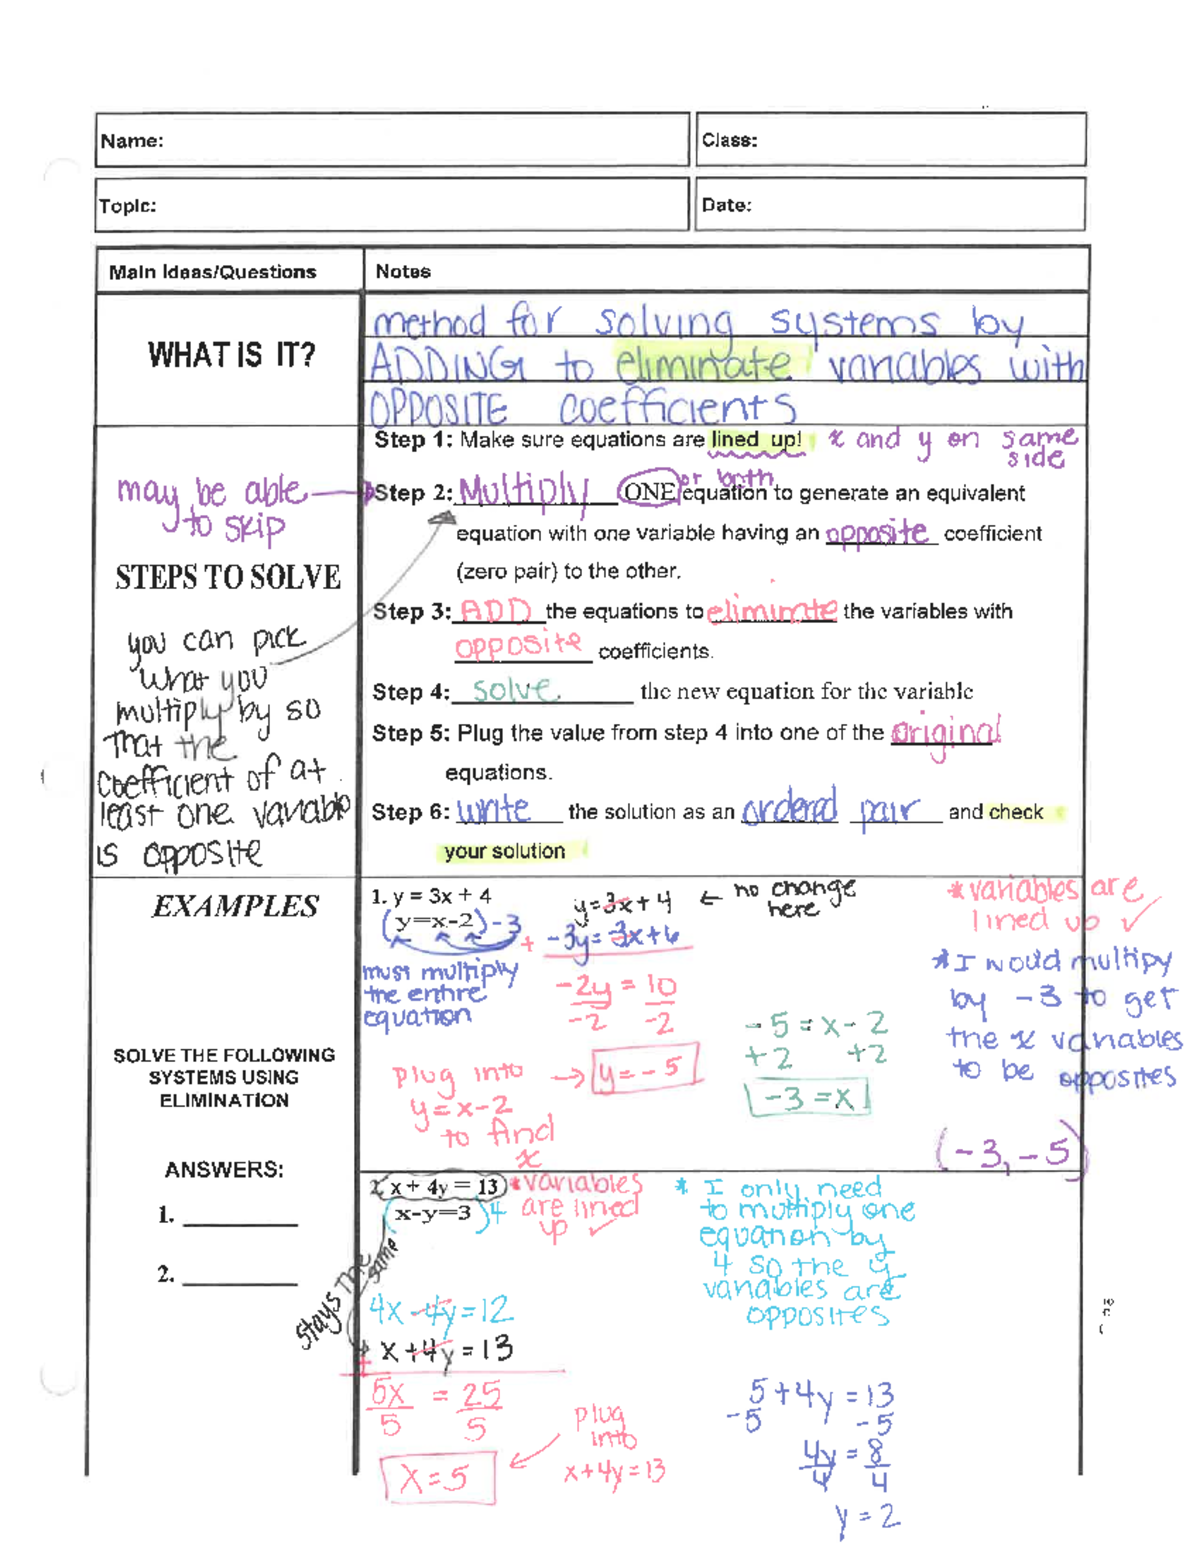 Name:
Class:
Topic:
Date:
Main Ideas/Questions
Notes
WHAT IS IT?
method for solving systems by
ADDING to eliminate variables with
OPPOSITE coefficients
Step 1: Make sure equations are lined up! x and y on same
side
may be able
to skip
Step 2: Multiply ONE or both equation to generate an equivalent
equation with one variable having an opposite coefficient
(zero pair) to the other.
STEPS TO SOLVE
you can pick
what you
multiply by so
that the
coefficient of at
least one variable
is opposite
Step 3: ADD the equations to eliminate the variables with
opposite coefficients.
Step 4: solve the new equation for the variable
Step 5: Plug the value from step 4 into one of the original
equations.
Step 6: write the solution as an ordered pair and check
your solution
EXAMPLES
SOLVE THE FOLLOWING
SYSTEMS USING
ELIMINATION
ANSWERS:
1.
2.
1. y = 3x + 4
(y=x-2)-3
must multiply
the entire
equation
y=3x+4
← no change
here
+ -3y=-3x+6
-2y = 10
-2 -2
y=-5
plug into →
y=x-2
to find
x
-5=x-2
+2 +2
-3=x
*variables are
lined up ✓
*I would multipy
by -3 to get
the x variables
to be opposites
(-3,-5)
2. x + 4y = 13
(x-y=3)4
*variables
are lined
up ✓
* I only need
to multiply one
equation by
4 so the y
variables are
opposites
stays the
same
4x-4y=12
+ x+4y=13
5x = 25
5 5
x=5
plug
into
x+4y=13
5+4y=13
-5 -5
4y=8
4 4
y=2